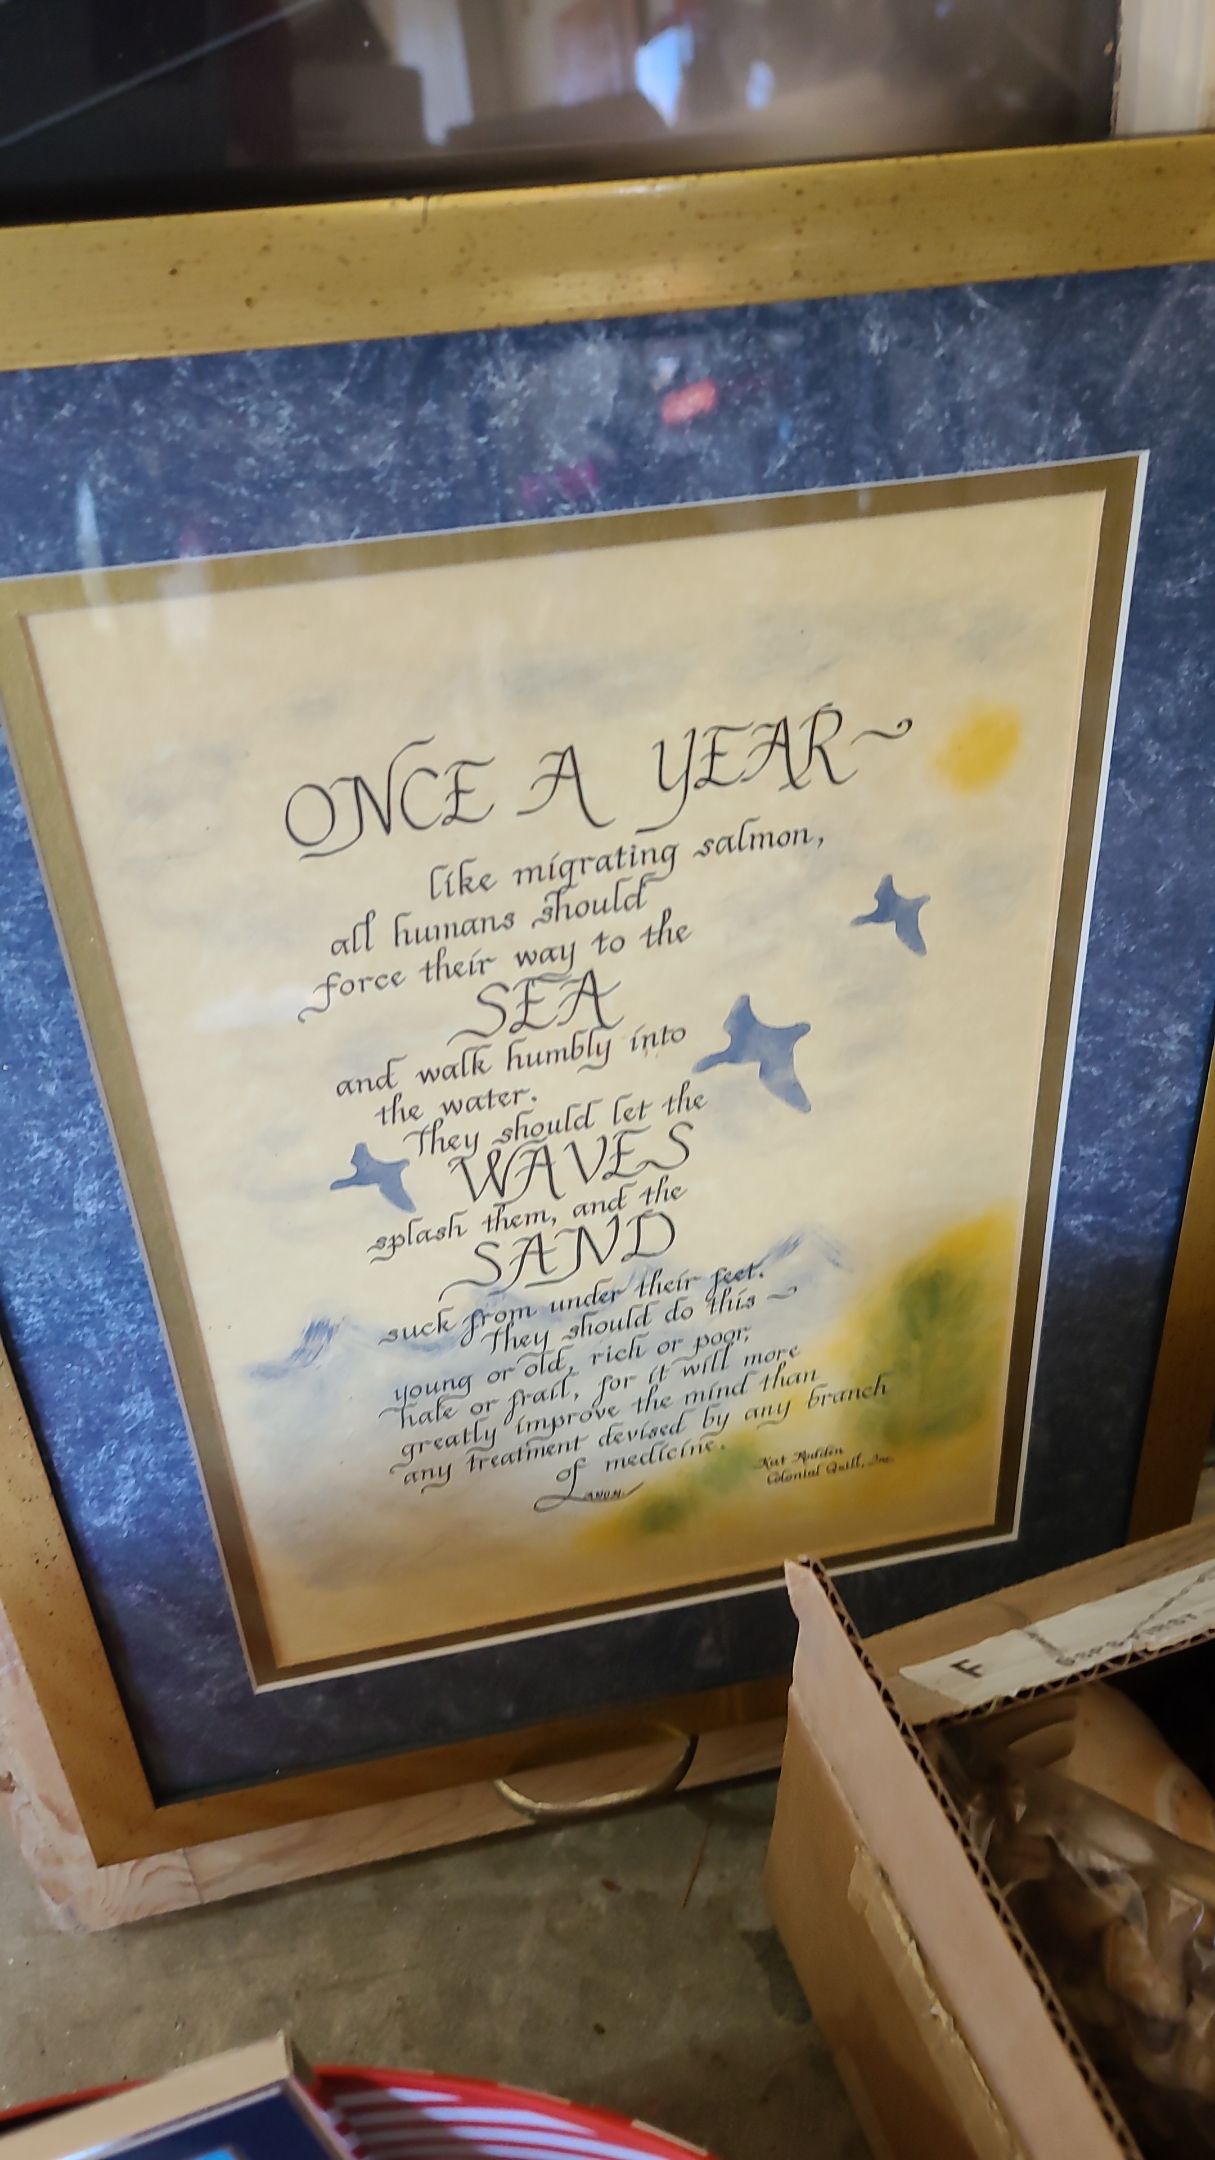 ONCE A YEAR~
like migrating salmon,
all humans should
force their way to the
SEA
and walk humbly into
the water.
They should let the
WAVES
splash them, and the
SAND
suck from under their feet.
They should do this ~
young or old, rich or poor,
hale or frail, for it will more
greatly improve the mind than
any treatment devised by any branch
of medicine.
ANON.
Colonial Quill, Inc.
F
USPS FIRST